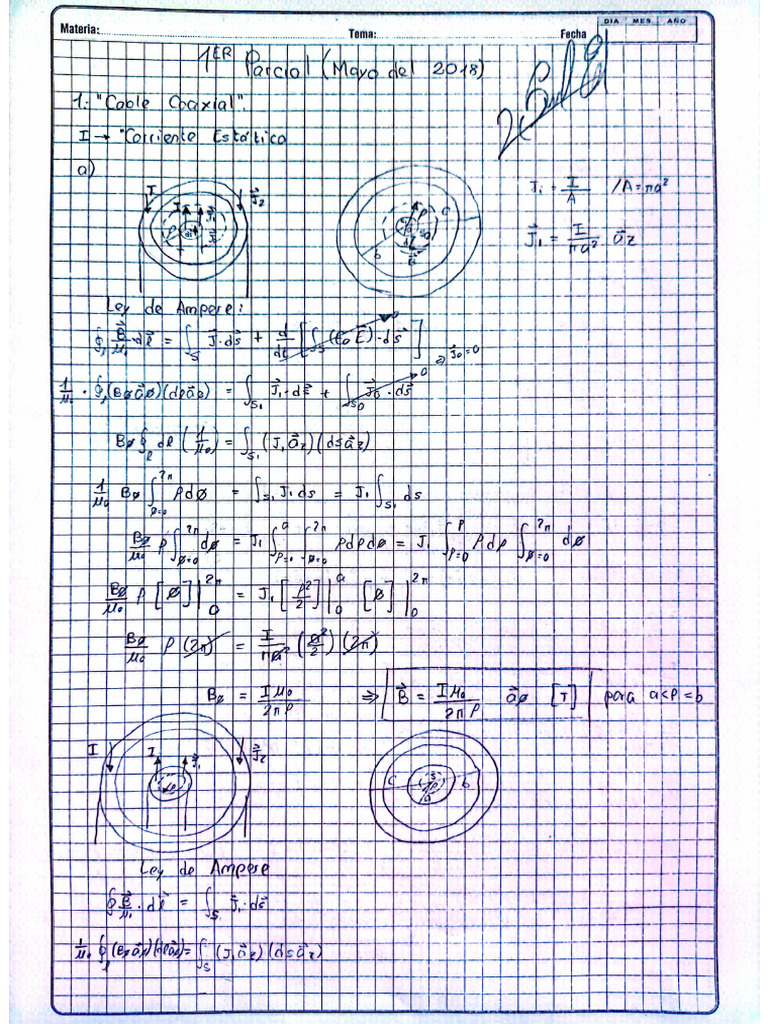 DIA MES AÑO
Materia: Tema: Fecha
1ER Parcial (Mayo del 2018)
1. "Cable Coaxial".
I → "Corriente Estática
a)
J₁ = I/A /A=πa²
J⃗₁ = I/πa² a⃗z
I I J⃗₁ J⃗₂ ρ
ρ c b a
Ley de Ampere:
∮ₗ B⃗/μ₀ · dl⃗ = ∫ₛ J⃗·ds⃗ + d/dt [∫ₛ (ε₀E⃗)·ds⃗] → 0
⇒ J⃗D=0
1/μ₀ · ∮ₗ (Bø a⃗ø)(dl a⃗ø) = ∫s₁ J⃗₁·ds⃗ + ∫s₀ J⃗D·ds⃗ → 0
Bø ∮ₗ dl (1/μ₀) = ∫s₁ (J₁a⃗z)(ds a⃗z)
1/μ₀ Bø ∫ø=0^2π ρdø = ∫s₁ J₁ ds = J₁ ∫s₁ ds
Bø/μ₀ ρ ∫ø=0^2π dø = J₁ ∫ρ=0^a ∫ø=0^2π ρdρdø = J₁ ∫ρ=0^ρ ρdρ ∫ø=0^2π dø
Bø/μ₀ ρ [ø]|0^2π = J₁ [ρ²/2]|0^a [ø]|0^2π
Bø/μ₀ ρ (2π) = I/πa² (a²/2) (2π)
Bø = Iμ₀/2πρ ⇒ B⃗ = Iμ₀/2πρ a⃗ø [T] para a<ρ=b
I I J⃗₁ J⃗₂ ρ
c s ρ b a
Ley de Ampere
∮ B⃗/μ₀ · dl⃗ = ∫s J⃗₁·ds⃗
1/μ₀ ∮ₗ (Bø a⃗ø)(dl a⃗ø) = ∫s (J₁a⃗z)(ds a⃗z)